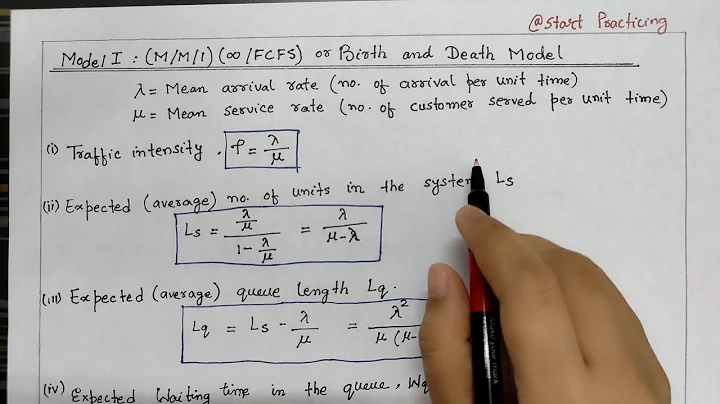 @Start Practicing
Model I : (M/M/1) (∞/FCFS) or Birth and Death Model
λ = Mean arrival rate (no. of arrival per unit time)
μ = Mean service rate (no. of customer served per unit time)
(i) Traffic intensity, ρ = λ/μ
(ii) Expected (average) no. of units in the system Ls
Ls = (λ/μ)/(1 - λ/μ) = λ/(μ-λ)
(iii) Expected (average) queue length Lq.
Lq = Ls - λ/μ = λ²/(μ(μ-
(iv) Expected Waiting time in the queue, Wq